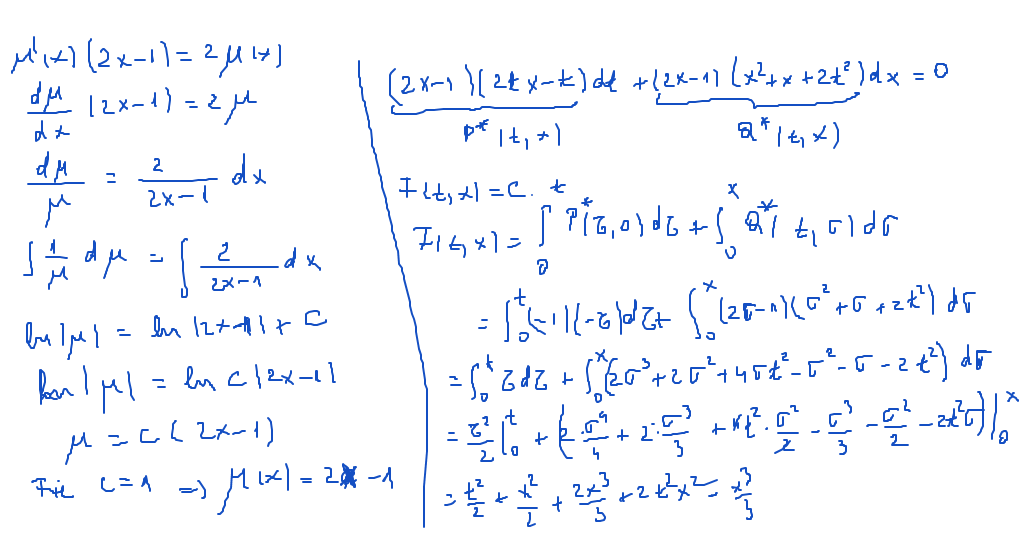 μ'(x)(2x-1) = 2μ(x)
dμ/dx (2x-1) = 2μ
dμ/μ = 2/(2x-1) dx
∫ 1/μ dμ = ∫ 2/(2x-1) dx
ln|μ| = ln|2x-1| + C
ln|μ| = ln C|2x-1|
μ = C(2x-1)
Fie C=1 => μ(x) = 2x-1
(2x-1)(2tx-t)dt + (2x-1)(x²+x+2t²)dx = 0
P*(t,x) Q*(t,x)
F(t,x) = C.
F(t,x) = ∫₀ᵗ P*(τ,0)dτ + ∫₀ˣ Q*(t,σ)dσ
= ∫₀ᵗ (-1)(-τ)dτ + ∫₀ˣ (2σ-1)(σ²+σ+2t²)dσ
= ∫₀ᵗ τdτ + ∫₀ˣ (2σ³+2σ²+4σt²-σ²-σ-2t²)dσ
= τ²/2 |₀ᵗ + (2·σ⁴/4 + 2·σ³/3 + 4t²·σ²/2 - σ³/3 - σ²/2 - 2t²σ)|₀ˣ
= t²/2 + x²/2 + 2x³/3 + 2t²x² - x³/3